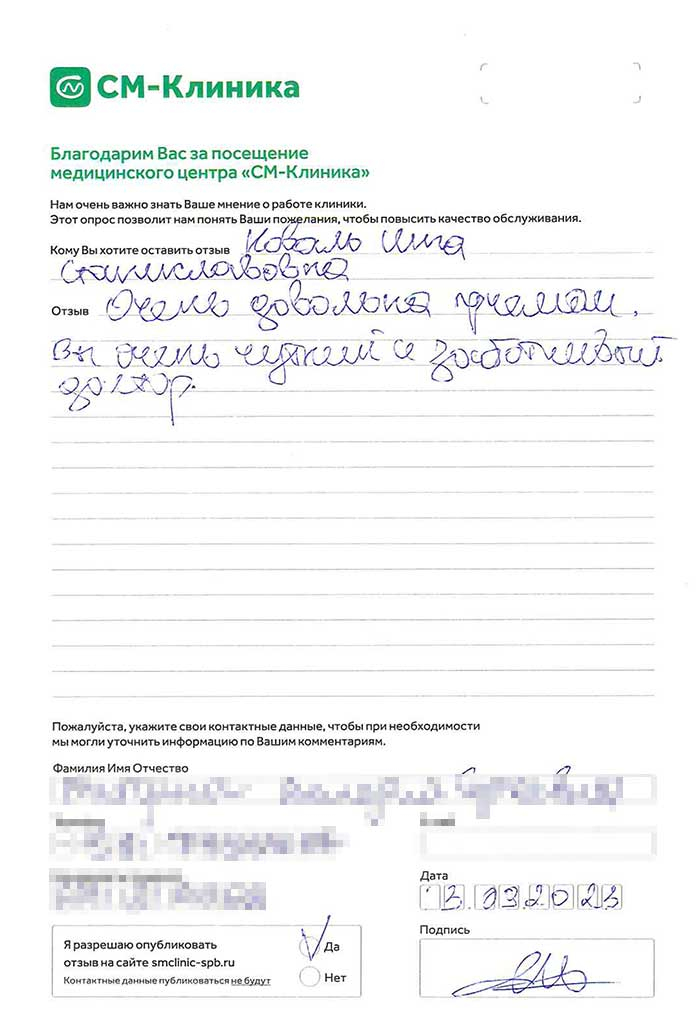 СМ-Клиника
Благодарим Вас за посещение
медицинского центра «СМ-Клиника»
Нам очень важно знать Ваше мнение о работе клиники.
Этот опрос позволит нам понять Ваши пожелания, чтобы повысить качество обслуживания.
Кому Вы хотите оставить отзыв Коваль Инга
Станиславовна
Отзыв Очень довольна приемом.
Вы очень чуткий и заботливый
доктор.
Пожалуйста, укажите свои контактные данные, чтобы при необходимости
мы могли уточнить информацию по Вашим комментариям.
Фамилия Имя Отчество
Дата
03.2023
Я разрешаю опубликовать
отзыв на сайте smclinic-spb.ru
Контактные данные публиковаться не будут
Да
Нет
Подпись